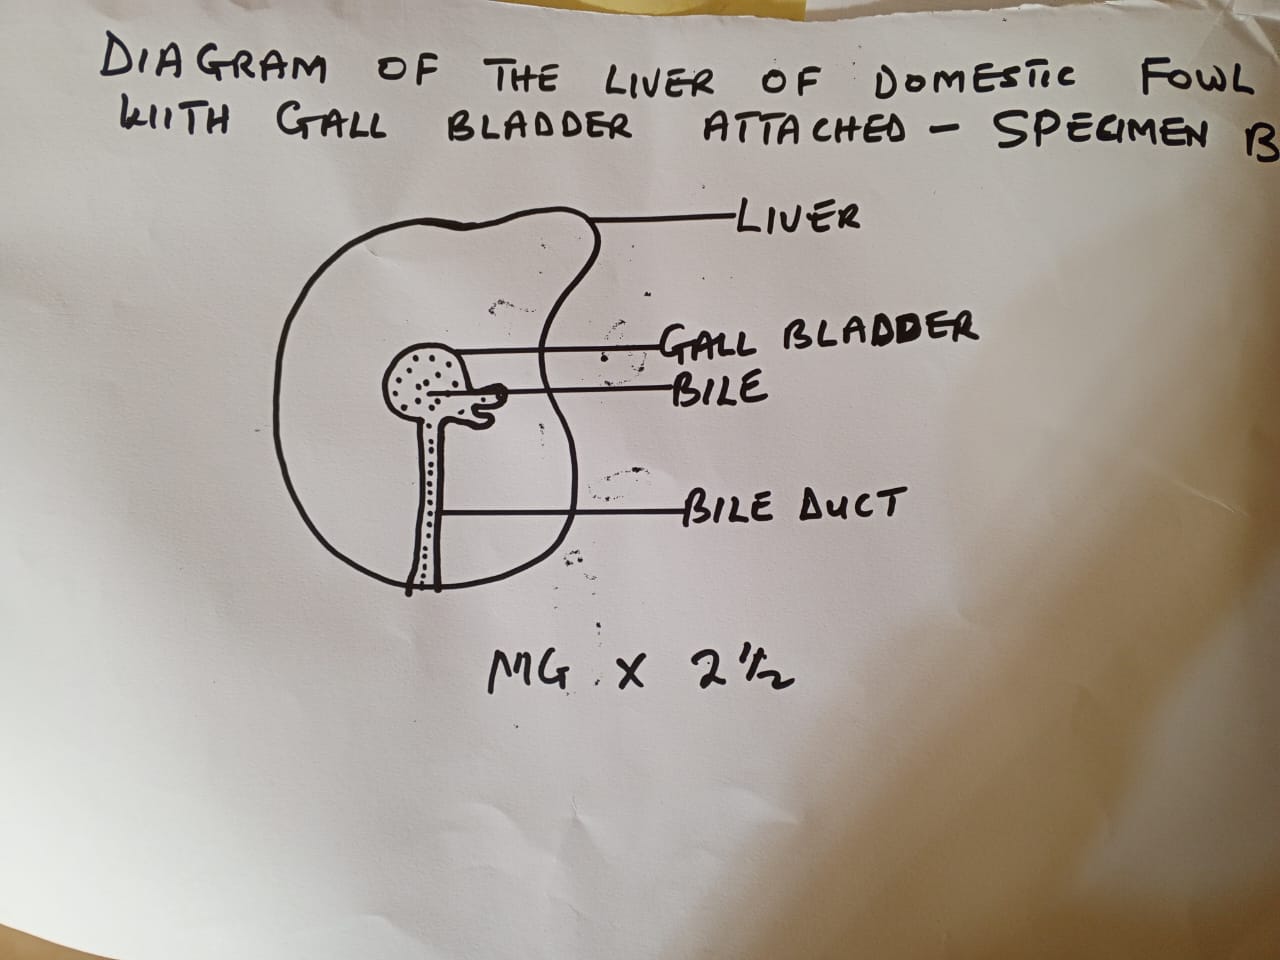 DIAGRAM OF THE LIVER OF DOMESTIC FOWL
WITH GALL BLADDER ATTACHED - SPECIMEN B
LIVER
GALL BLADDER
BILE
BILE DUCT
MG X 2 1/2